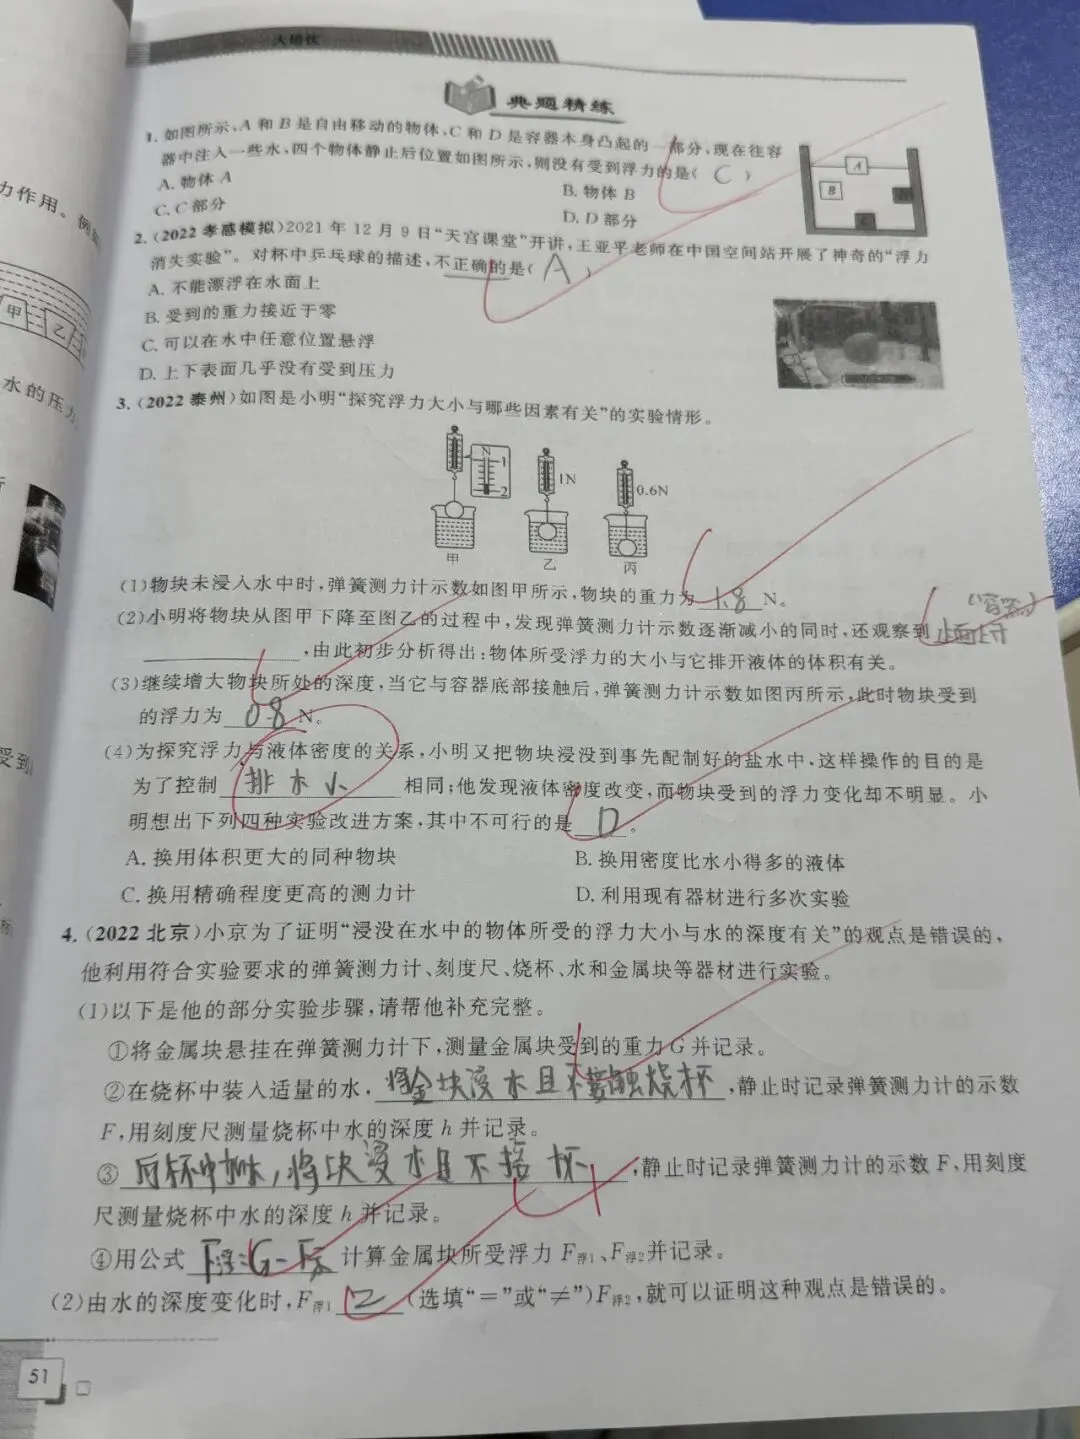 典题精练
1. 如图所示,A 和 B 是自由移动的物体,C 和 D 是容器本身凸起的一部分,现在往容
器中注入一些水,四个物体静止后位置如图所示,则没有受到浮力的是( C )
A. 物体 A
B. 物体 B
C. C 部分
D. D 部分
A
B
C
2. (2022 孝感模拟)2021 年 12 月 9 日“天宫课堂”开讲,王亚平老师在中国空间站开展了神奇的“浮力
消失实验”。对杯中乒乓球的描述,不正确的是( A )
A. 不能漂浮在水面上
B. 受到的重力接近于零
C. 可以在水中任意位置悬浮
D. 上下表面几乎没有受到压力
3. (2022 泰州)如图是小明“探究浮力大小与哪些因素有关”的实验情形。
N
1
2
1N
0.6N
甲
乙
丙
(1)物块未浸入水中时,弹簧测力计示数如图甲所示,物块的重力为 1.8 N。
(2)小明将物块从图甲下降至图乙的过程中,发现弹簧测力计示数逐渐减小的同时,还观察到
,由此初步分析得出:物体所受浮力的大小与它排开液体的体积有关。
(3)继续增大物块所处的深度,当它与容器底部接触后,弹簧测力计示数如图丙所示,此时物块受到
的浮力为 0.8 N。
(4)为探究浮力与液体密度的关系,小明又把物块浸没到事先配制好的盐水中,这样操作的目的是
为了控制 排水 相同;他发现液体密度改变,而物块受到的浮力变化却不明显。小
明想出下列四种实验改进方案,其中不可行的是 D 。
A. 换用体积更大的同种物块
B. 换用密度比水小得多的液体
C. 换用精确程度更高的测力计
D. 利用现有器材进行多次实验
4. (2022 北京)小京为了证明“浸没在水中的物体所受的浮力大小与水的深度有关”的观点是错误的,
他利用符合实验要求的弹簧测力计、刻度尺、烧杯、水和金属块等器材进行实验。
(1)以下是他的部分实验步骤,请帮他补充完整。
①将金属块悬挂在弹簧测力计下,测量金属块受到的重力 G 并记录。
②在烧杯中装入适量的水, 将金块浸水且不接触烧杯 ,静止时记录弹簧测力计的示数
F,用刻度尺测量烧杯中水的深度 h 并记录。
③ 向杯中加水,将块浸水且不接 杯 ,静止时记录弹簧测力计的示数 F,用刻度
尺测量烧杯中水的深度 h 并记录。
④用公式 F浮=G-F示 计算金属块所受浮力 F浮1、F浮2并记录。
(2)由水的深度变化时,F浮1 = (选填“=”或“≠”)F浮2,就可以证明这种观点是错误的。
51
力作用。例
甲
乙
水的压力
受到